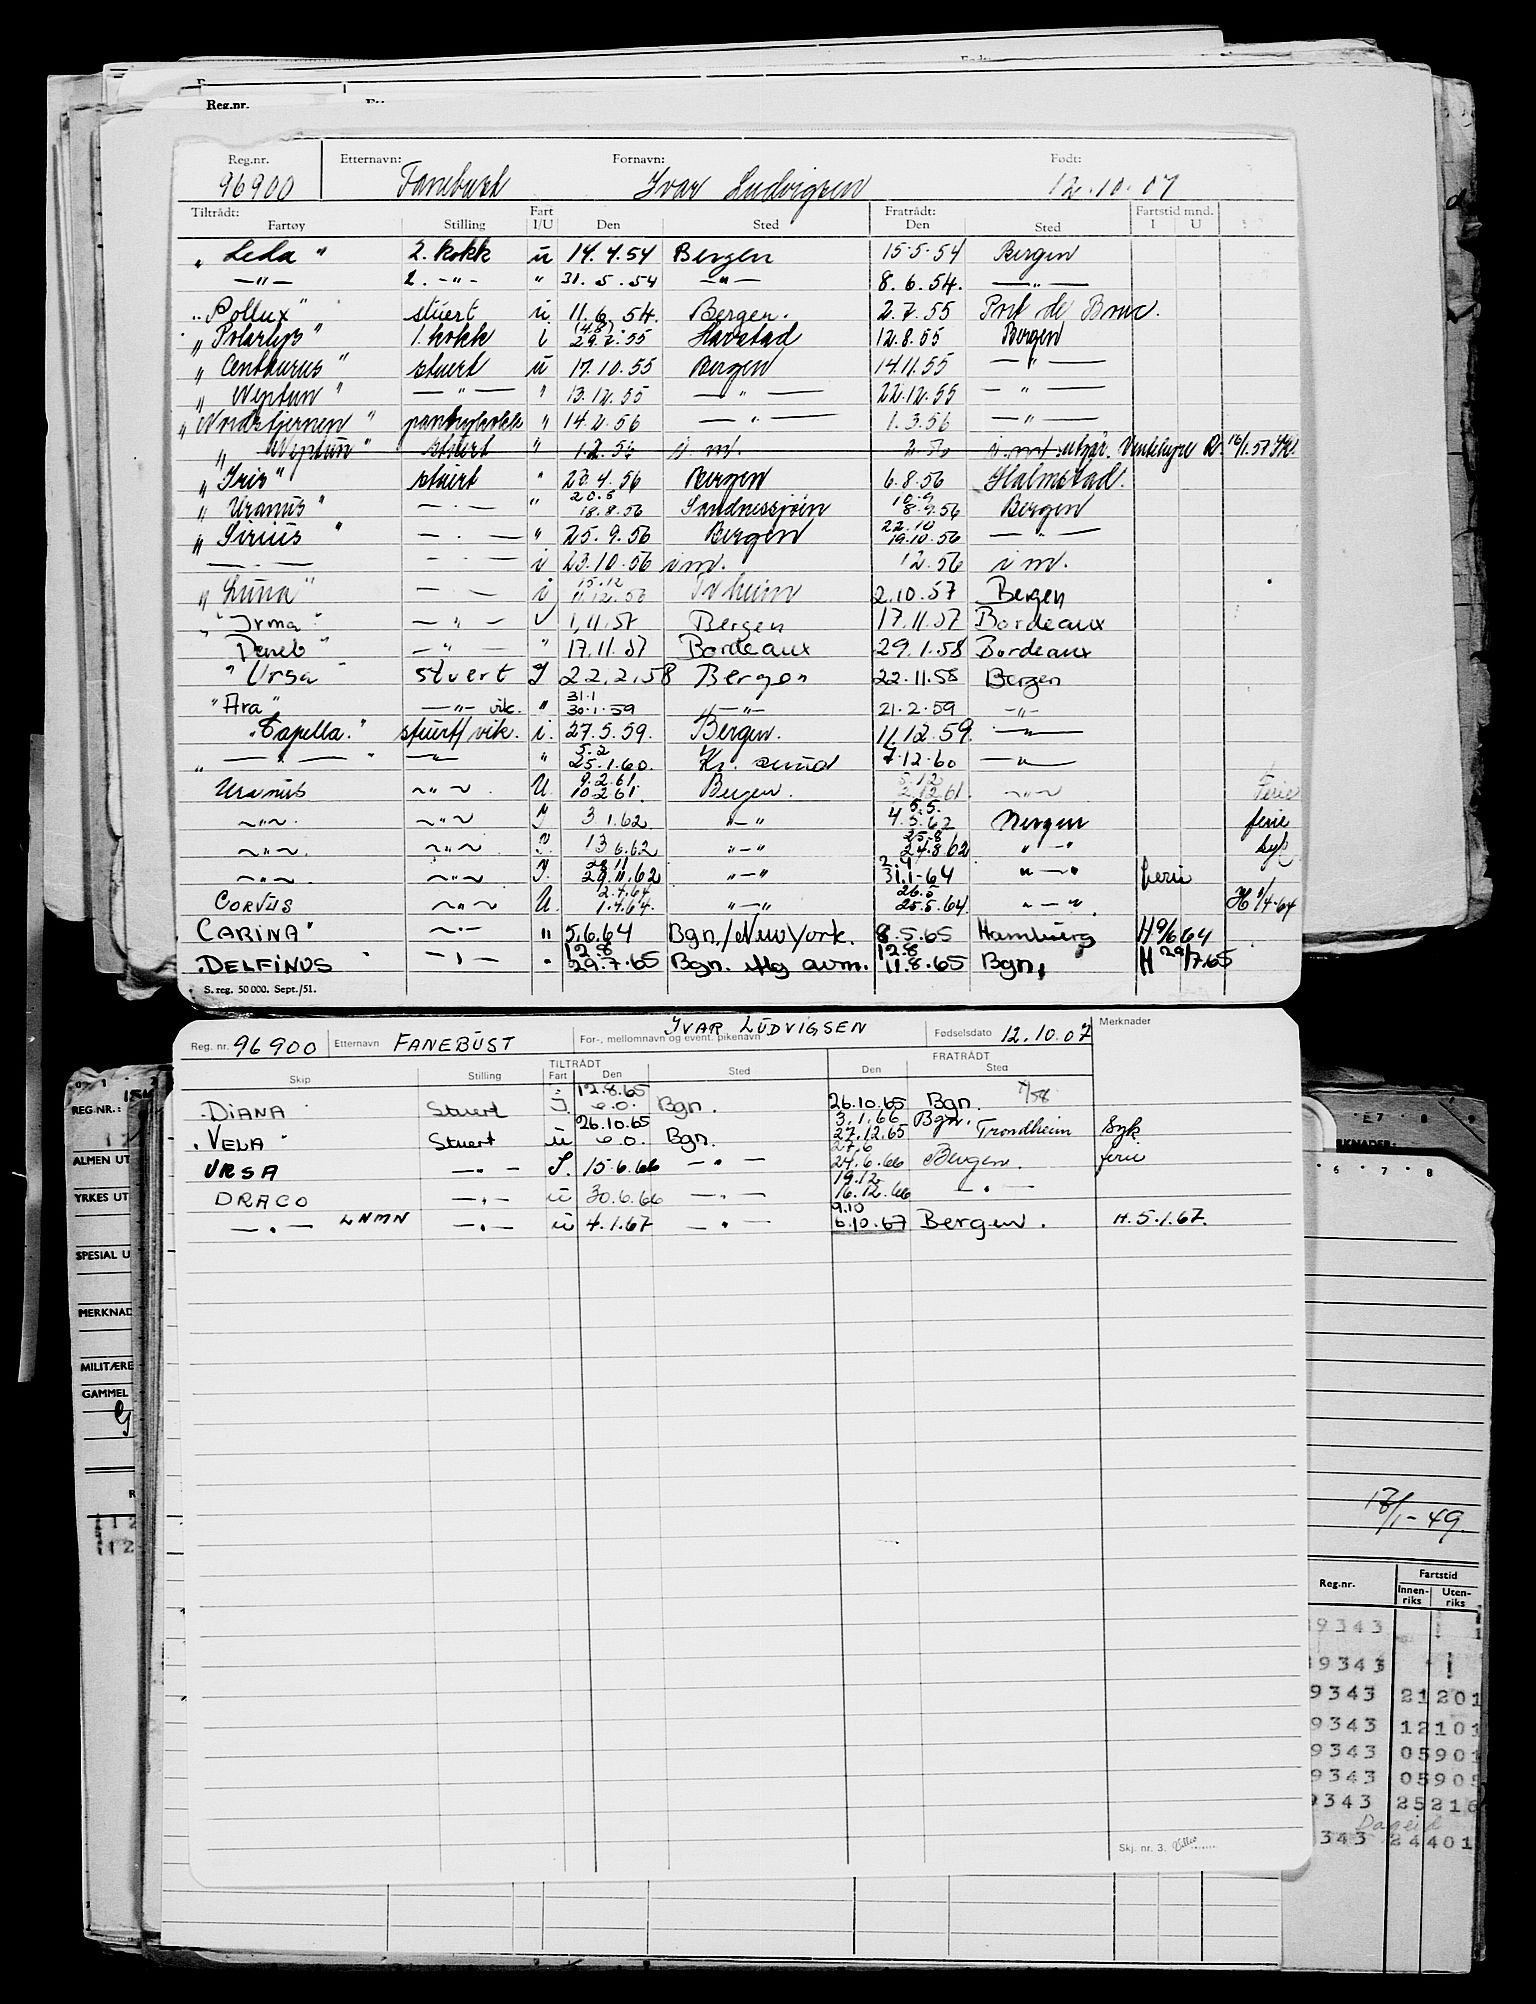 Reg.nr.
Reg.nr. Etternavn: Fornavn: Født:
96900 Fanebust Ivar Ludvigsen 12.10.07
Tiltrådt: Fart Fratrådt: Fartstid mnd.
Fartøy Stilling I/U Den Sted Den Sted I U
„ Leda " 2. kokk u 14.4.54 Bergen 15.5.54 Bergen
—"— 2. -"- " 31.5.54 —"— 8.6.54. —"—
„ Pollux" stuert u 11.6.54. Bergen. 2.7.55 Port de Bouc.
(4.8)
„ Polarlys" 1. kokk i 29.7.55 Harstad 12.8.55 Bergen
„ Centaurus " stuert u 17.10.55 Bergen 14.11.55 —"—
„ Neptun " —"— " 13.12.55 —"— 22.12.55 —"—
„ Nordstjernen " pantrykokk " 14.2.56 —"— 1.3.56 —"—
„ Neptun" stuert " 1.2.56 i.m. 2.56 i.m. utgår 16/1.57
„ Iris" stuert " 23.4.56 Bergen 6.8.56 Halmstad.
20.8 10.9
„ Uranus " —"— " 18.8.56 Sandnessjøen 8.9.56 Bergen
22.10
„ Sirius " —"— " 25.9.56 Bergen 19.10.56 —"—
—"— —"— i 23.10.56 i m. 12.56 i m.
15.12
„ Luna" —"— i 11.12.56 Tr heim 2.10.57 Bergen
" Irma " —"— U 1.11.57 Bergen 17.11.57 Bordeaux
" Deneb " —"— " 17.11.57 Bordeaux 29.1.58 Bordeaux
" Ursa " stuert I 22.2.58 Bergen 22.11.58 Bergen
31.1
"Ara" —"— vik. " 30.1.59 —"— 21.2.59 —"—
"Capella." stuert/vik. i. 27.5.59. Bergen. 11.12.59. —"—
5.2
„ —"— " —"— " 25.1.60. Kr. sund 7.12.60 —"—
9.2.61 5.12
Uranus —"— U. 10.2.61. Bergen. 2.12.61. —"— Ferie
5.5.
—"— —"— I 3.1.62. —"— 4.5.62 Bergen ferie
25.8
—"— —"— I. 13.6.62 —"— 24.8.62 —"— Syk
28.11 2.4
—"— —"— I. 29.11.62 —"— 31.1-64 —"— ferie
2.4.64 26.5
CORVUS —"— U. 1.4.64. —"— 25.5.64. —"— H 1/4-64
CARINA" —"— " 5.6.64 Bgn./New York. 8.5.65 Hamburg H 9/6 64
12.8 12.8
"DELFINUS —"— " 29.7.65 Bgn. avm. 11.8.65 Bgn. H 29/7.65
S. reg. 50 000. Sept./51.
Reg. nr. 96900 Etternavn FANEBUST For-, mellomnavn og event. pikenavn IVAR LUDVIGSEN Fødselsdato 12.10.07 Merknader
TILTRÅDT FRATRÅDT
Skip Stilling Fart Den Sted Den Sted
12.8.65
"DIANA" Stuert I. e.o. Bgn. 26.10.65 Bgn.
26.10.65 3.1.66 Bgn.
"VELA" Stuert u e.o. Bgn. 27.12.65 Trondheim Syk
27.6
URSA —"— I. 15.6.66 —"— 24.6.66 Bergen. ferie
19.12
DRACO —"— u 30.6.66 —"— 16.12.66 —"—
9.10
—"— LNMN —"— u 4.1.67 —"— 6.10.67 Bergen. H.5.1.67.
Skj. nr. 3.
REG.NR.:
ALMEN UT
YRKES UT
SPESIAL U
MERKNAD
MILITÆRE
GAMMEL
RKNADER:
6 7 8
Reg.nr. Fartstid
Innen-riks Uten-riks
9343
9343
9343 21201
9343 12101
9343 05901
9343 05905
9343 25216
343 24401